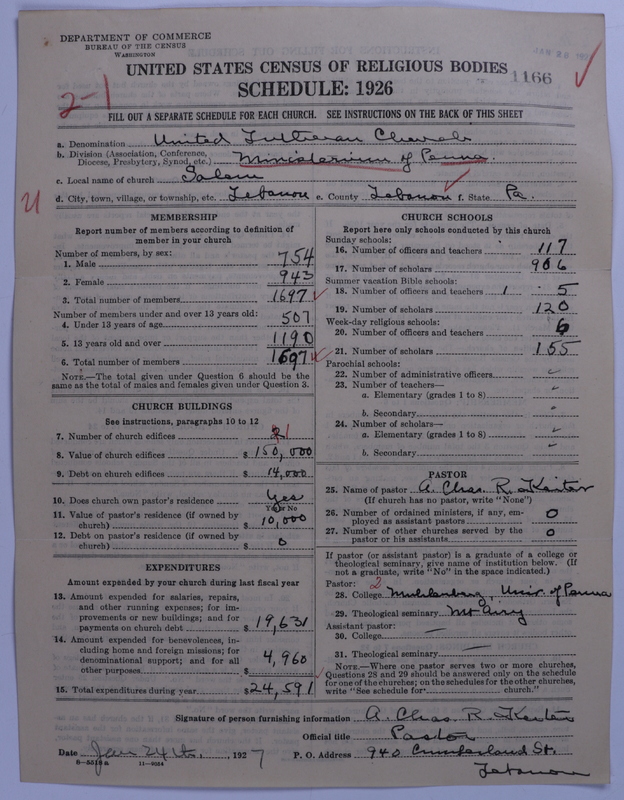 DEPARTMENT OF COMMERCE
BUREAU OF THE CENSUS
WASHINGTON
UNITED STATES CENSUS OF RELIGIOUS BODIES
1166
SCHEDULE: 1926
2-1
FILL OUT A SEPARATE SCHEDULE FOR EACH CHURCH. SEE INSTRUCTIONS ON THE BACK OF THIS SHEET
a. Denomination United Lutheran Church
b. Division (Association, Conference, Diocese, Presbytery, Synod, etc.) Ministerium of Penna.
c. Local name of church Salem
d. City, town, village, or township, etc. Lebanon e. County Lebanon f. State Pa.
MEMBERSHIP
Report number of members according to definition of
member in your church
Number of members, by sex:
1. Male 754
2. Female 943
3. Total number of members 1697
Number of members under and over 13 years old:
4. Under 13 years of age 507
5. 13 years old and over 1190
6. Total number of members 1697
NOTE.—The total given under Question 6 should be the
same as the total of males and females given under Question 3.
CHURCH BUILDINGS
See instructions, paragraphs 10 to 12
7. Number of church edifices 1
8. Value of church edifices $ 150,000
9. Debt on church edifices $ 14,000
10. Does church own pastor's residence Yes
Yes or No
11. Value of pastor's residence (if owned by
church) $ 10,000
12. Debt on pastor's residence (if owned by
church) $ 0
EXPENDITURES
Amount expended by your church during last fiscal year
13. Amount expended for salaries, repairs,
and other running expenses; for im-
provements or new buildings; and for
payments on church debt $ 19,631
14. Amount expended for benevolences, in-
cluding home and foreign missions; for
denominational support; and for all
other purposes $ 4,960
15. Total expenditures during year $ 24,591
CHURCH SCHOOLS
Report here only schools conducted by this church
Sunday schools:
16. Number of officers and teachers 117
17. Number of scholars 906
Summer vacation Bible schools:
18. Number of officers and teachers 1 5
19. Number of scholars 120
Week-day religious schools:
20. Number of officers and teachers 6
21. Number of scholars 155
Parochial schools:
22. Number of administrative officers
23. Number of teachers—
a. Elementary (grades 1 to 8)
b. Secondary
24. Number of scholars—
a. Elementary (grades 1 to 8)
b. Secondary
PASTOR
25. Name of pastor A. Chas. R. Keiter
(If church has no pastor, write "None")
26. Number of ordained ministers, if any, em-
ployed as assistant pastors 0
27. Number of other churches served by the
pastor or his assistants 0
If pastor (or assistant pastor) is a graduate of a college or
theological seminary, give name of institution below. (If
not a graduate, write "No" in the space indicated.)
Pastor: 2
28. College Muhlenberg, Univ. of Penna
29. Theological seminary Mt Airy
Assistant pastor:
30. College —
31. Theological seminary —
NOTE.—Where one pastor serves two or more churches,
Questions 28 and 29 should be answered only on the schedule
for one of the churches; on the schedules for the other churches,
write "See schedule for church."
Signature of person furnishing information A. Chas. R. Keiter
Official title Pastor
Date Jan 24th, 1927 P. O. Address 940 Cumberland St.
8-5518a 11-9524 Lebanon